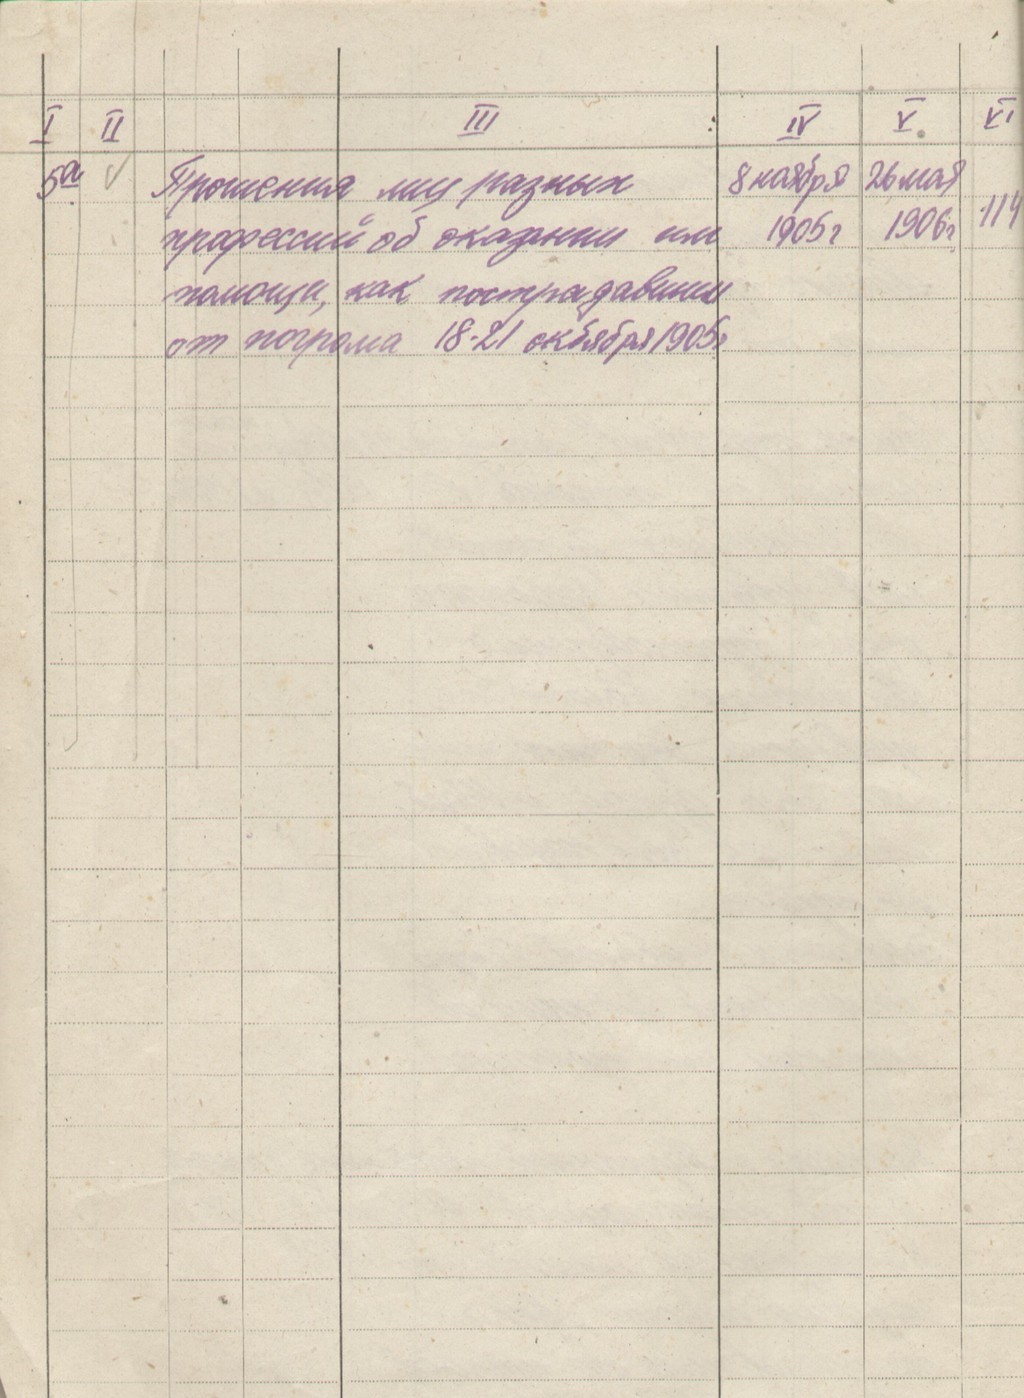 I II III IV V VI
5а Прошения лиц разных 8 ноября 26 мая
профессий об оказании им 1905 г 1906 г 114
помощи, как пострадавшим
от погрома 18-21 октября 1905 г